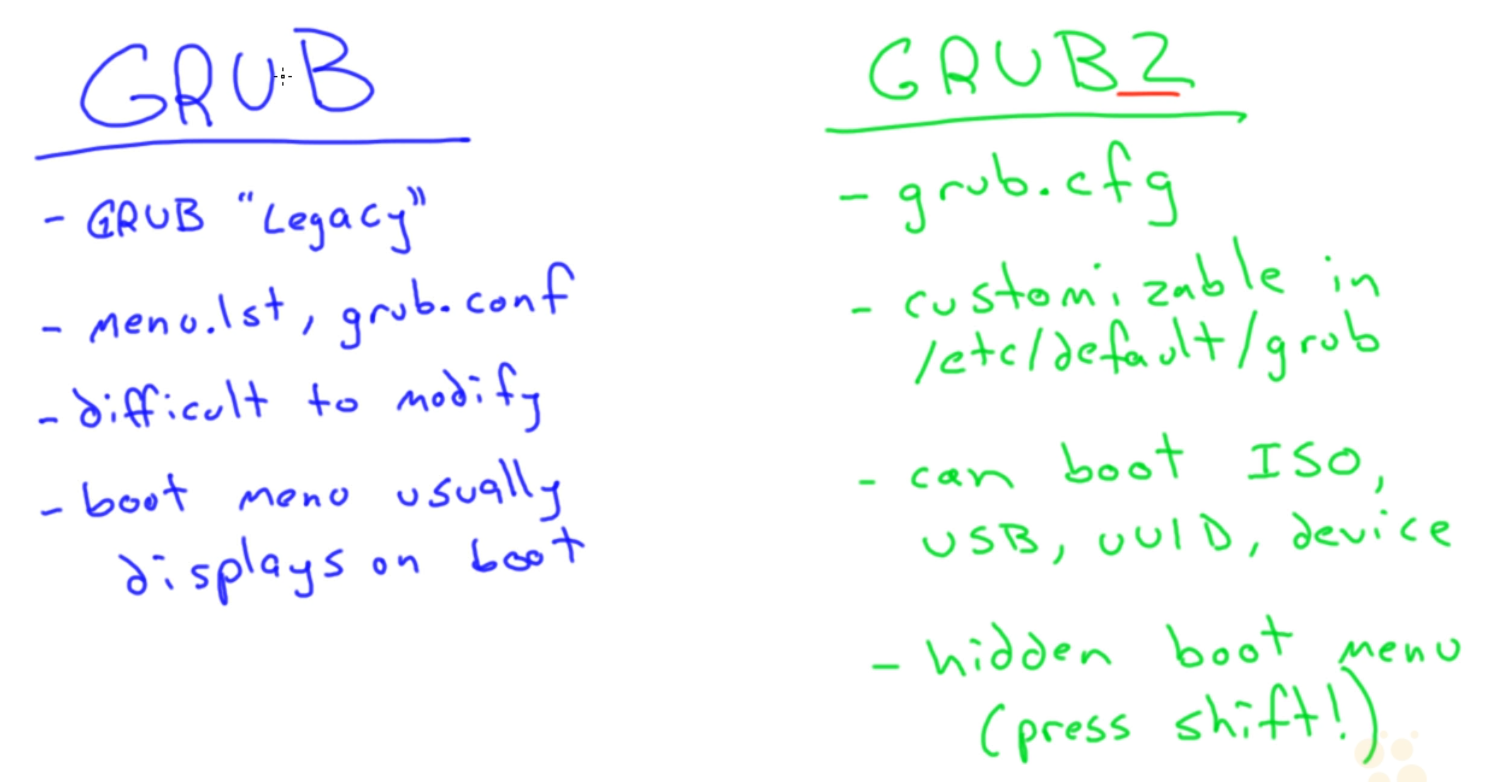 GRUB
- GRUB "Legacy"
- menu.lst, grub.conf
- difficult to modify
- boot menu usually
displays on boot
GRUB2
- grub.cfg
- customizable in
/etc/default/grub
- can boot ISO,
USB, UUID, device
- hidden boot menu
(press shift!)